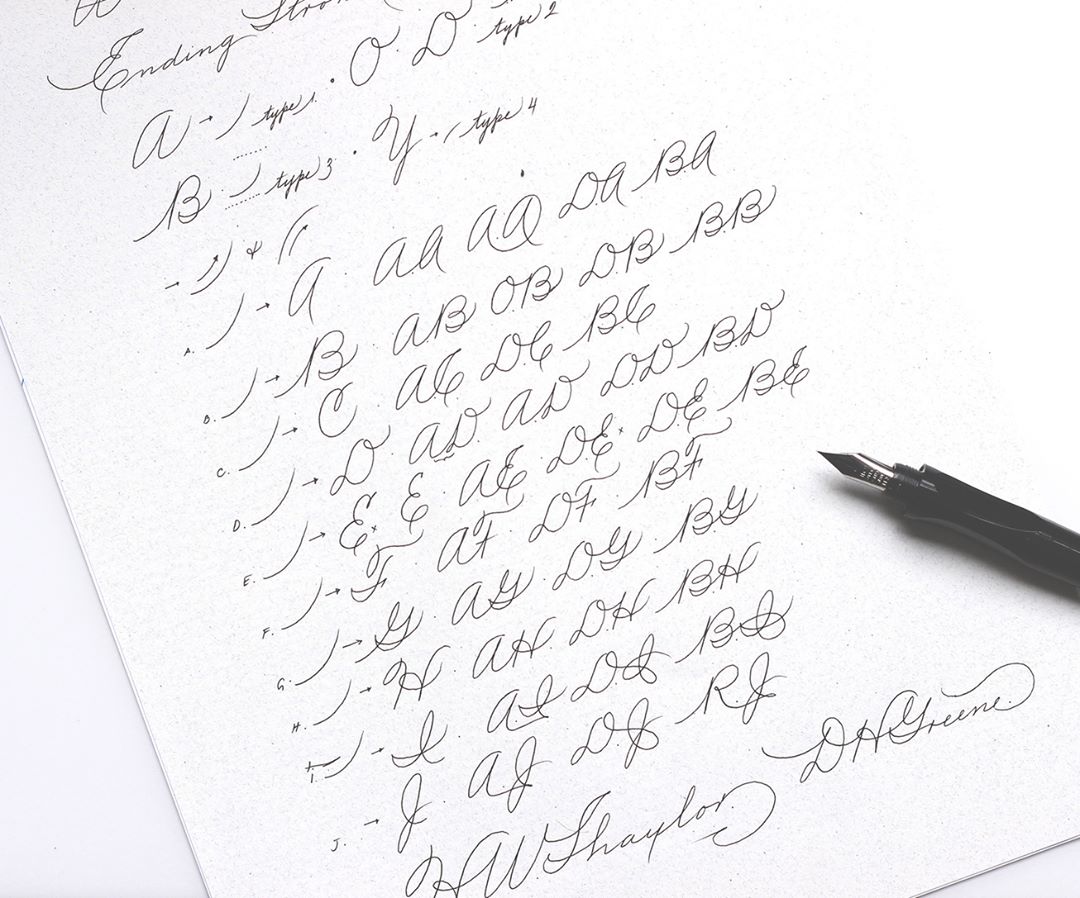 Ending
A → type 1. • O. D type 2
B type 3 • Y → type 4
A. → A AA A.A D.A B.A
B. → B. AB OB D.B B.B
C. → C AC DC BC
D. → D AD. AD D.D B.D
E. → E E. AE DE D.E B.E
F. → F AF. DF. BF
G. → G AG D.G B.G
H. → H. AH. DH BH
I. → I. A.I D.I B.I
J. → J. AJ DJ R.J
HW Shaylor. DH Greene